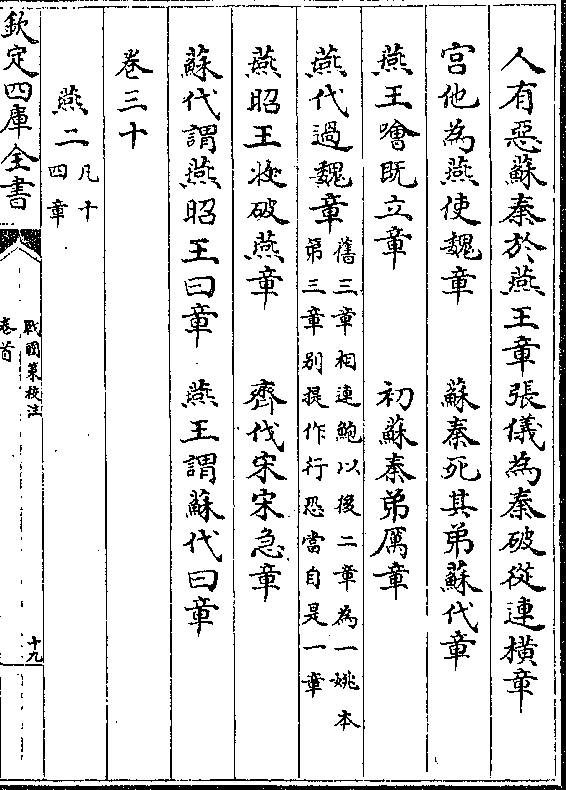 人有惡蘇秦於燕王章 張儀為秦破從連橫章
宫他為燕使魏章 蘇秦死其弟蘇代章
燕王噲既立章 初蘇秦弟厲章
燕代過魏章 舊三章相連鮑以後二章為一姚本
第三章别提作行恐當自是一章
燕昭王收破燕章 齊伐宋宋急章
蘇代謂燕昭王曰章 燕王謂蘇代曰章
卷三十
燕二 凡十
四章
欽定四庫全書
戰國策校注
卷首
十九